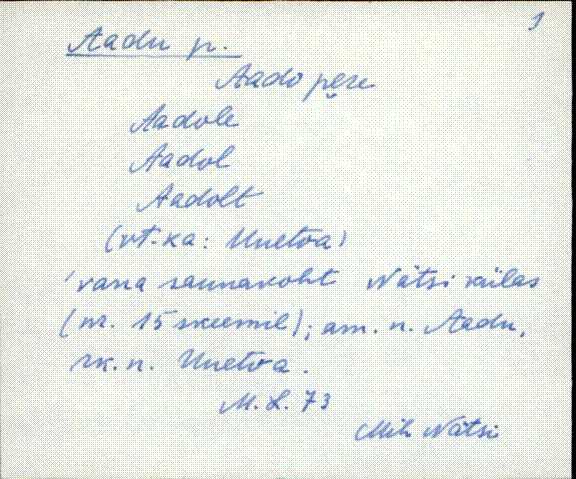 1
Aadu p.
Aado pere
Aadole
Aadol
Aadolt
(vt. ka: Unetoa)
'vana saunakoht Nätsi külas
(nr. 15 skeemil); am. n. Aadu,
rk. n. Unetoa.
M. L. 73
Mih Nätsi